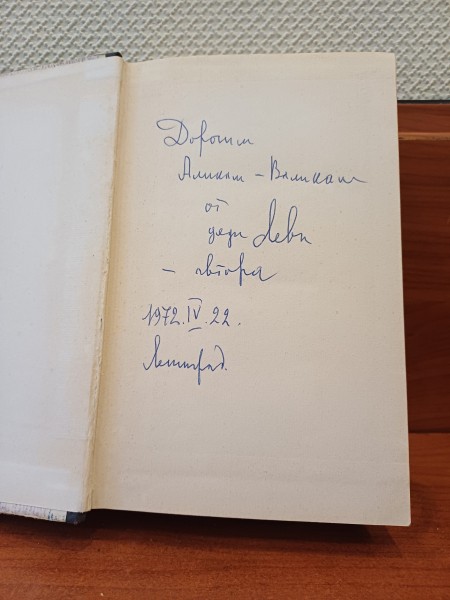 Дорогим
Аликам - Валикам
от
дяди Левы
- автора
1972.IV.22.
Ленинград.